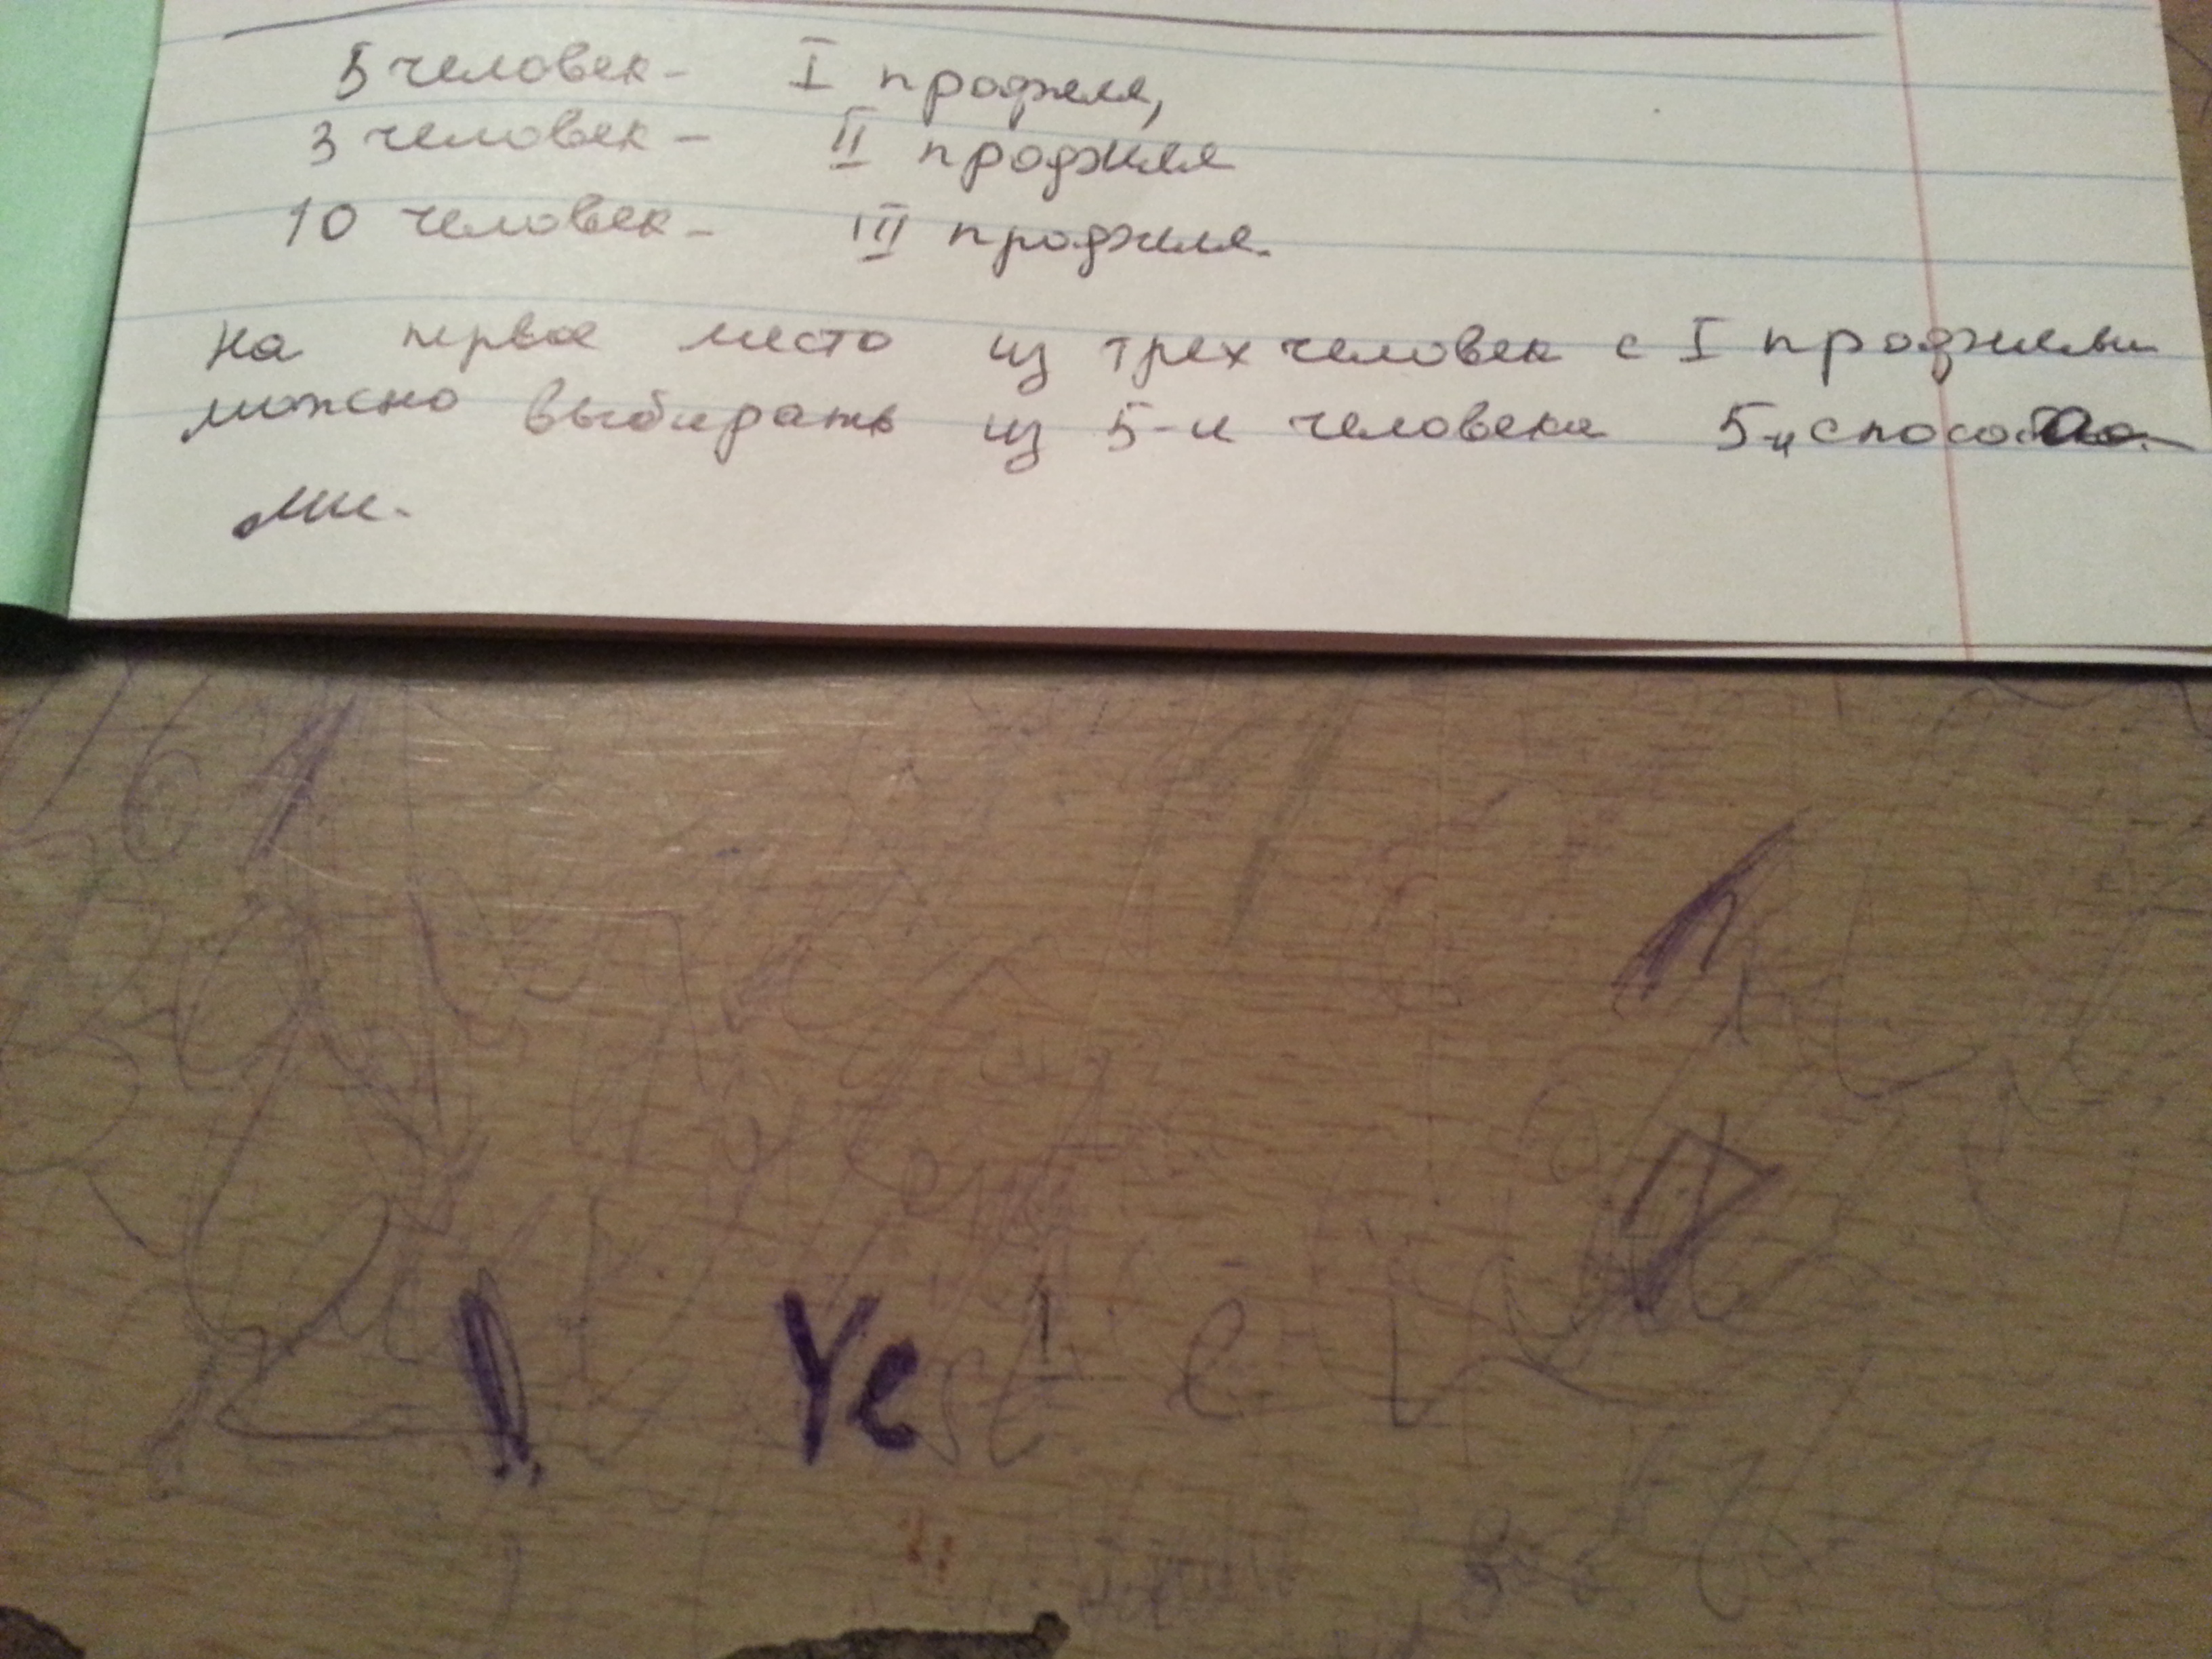 5 человек - I профиля,
3 человек - II профиля
10 человек - III профиля.
На первое место из трех человек с I профилем
можно выбирать из 5-и человека 5-и способа-
ми.
Yes!